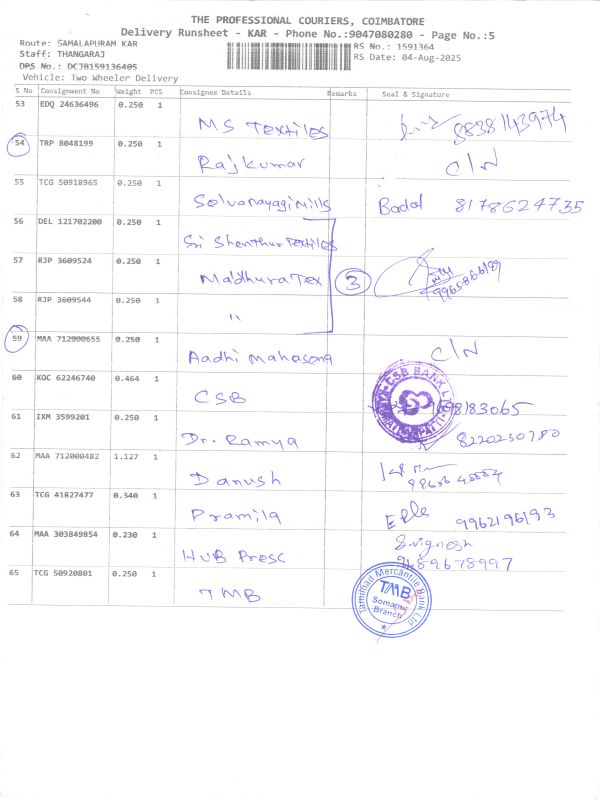 THE PROFESSIONAL COURIERS, COIMBATORE
Delivery Runsheet - KAR - Phone No.:9047080280 - Page No.:5
Route: SAMALAPURAM KAR
RS No.: 1591364
Staff: THANGARAJ
RS Date: 04-Aug-2025
DPS No.: DCJB159136405
Vehicle: Two Wheeler Delivery
S No Consignment No Weight PCS Consignee Details Remarks Seal & Signature
53 EDQ 24636496 0.250 1
MS Textiles 88381143974
54 TRP 8048199 0.250 1
Rajkumar C/N
55 TCG 50918965 0.250 1
Selvanayagi Mills Badal 8178624735
56 DEL 121702200 0.250 1
Sri Shenthur Textiles
57 RJP 3609524 0.250 1
Madhura Tex 3 9965866189
58 RJP 3609544 0.250 1
"
59 MAA 712000655 0.250 1
Aadhi Mahasong C/N
60 KOC 62246740 0.464 1
CSB 9698183065
CSB BANK
61 IXM 3599201 0.250 1
Dr. Ramya 8220230780
62 MAA 712000482 1.127 1
Danush
63 TCG 41827477 0.340 1
Pramila 9962196193
64 MAA 303849854 0.230 1
HUB Presc S.vignesh
9489678997
65 TCG 50920801 0.250 1
TMB
Tamilnad Mercantile Bank Ltd.
TMB
Somanur
Branch